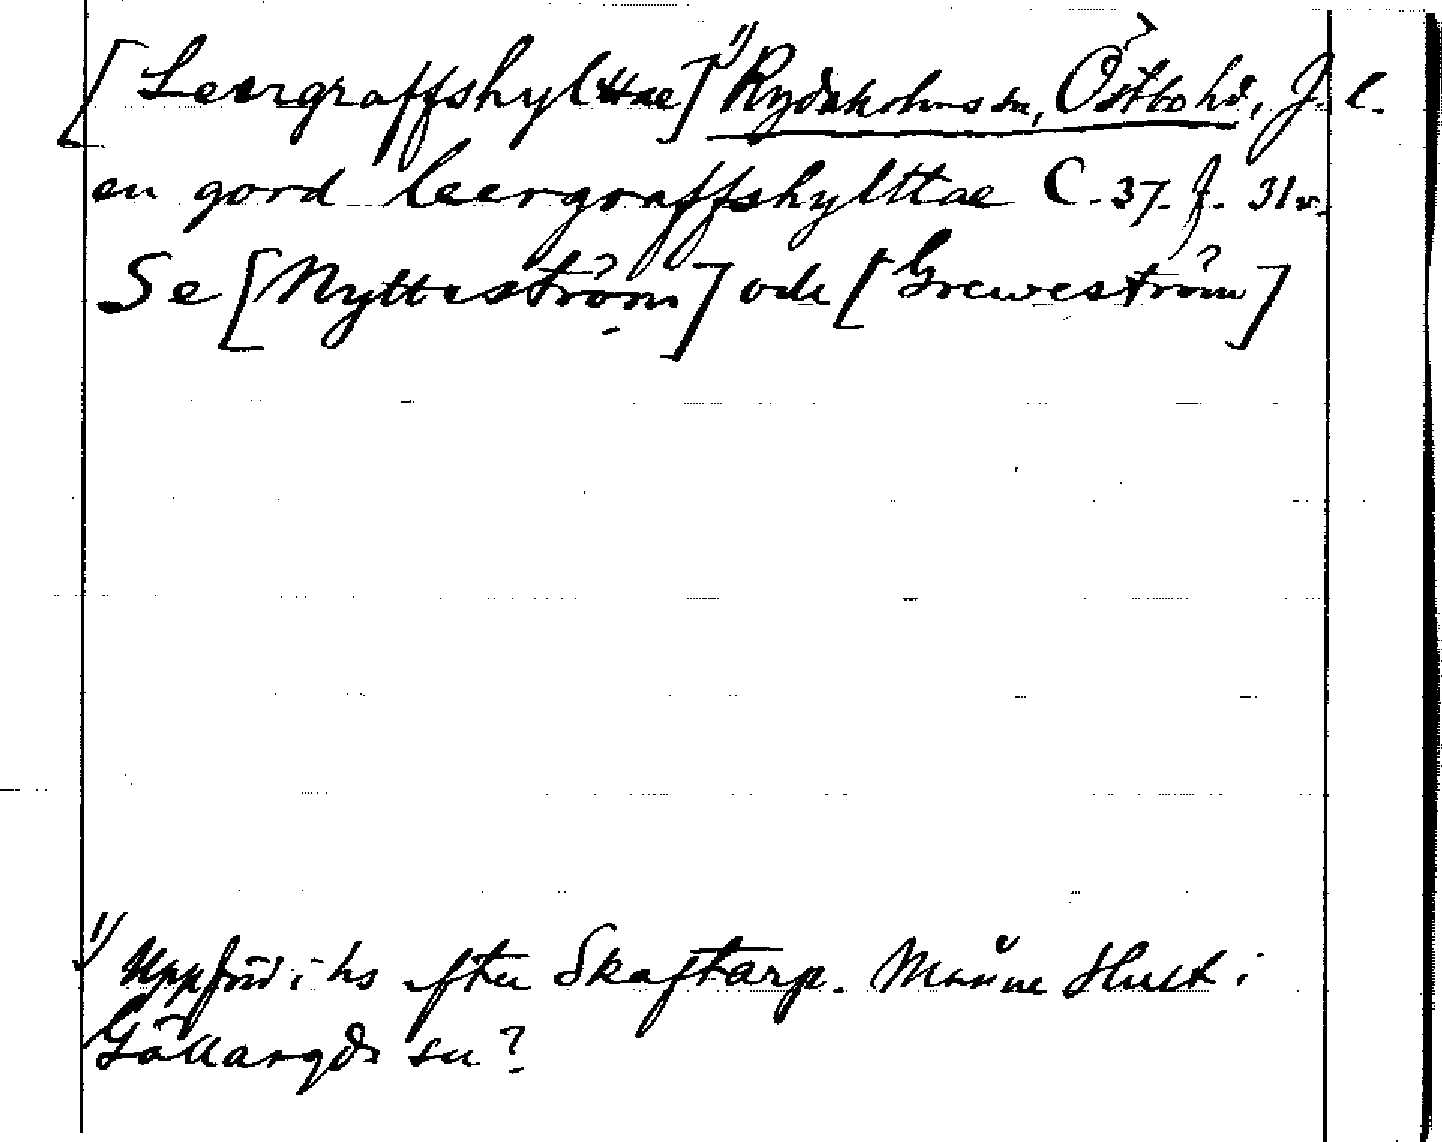 [Leergraffshylttae] 1) Rydaholms sn, Östbo hd, J. l.
en gord leergraffshylttae C. 37. f. 31v.
Se [Nytteström?] och [Greweström?]
1) Uppförd i hs efter Skaftarp. Månne Hult i
Gällaryds sn?